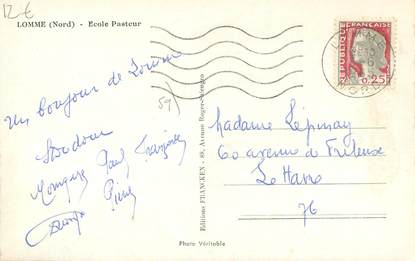 12 €
LOMME (Nord) - Ecole Pasteur
REPUBLIQUE FRANÇAISE
0.25
NORD
59
Un bonjour de Lomme
Paul Françoise
Pierre
Editions FRANCKEN - 88, Avenue Roger-Salengro
Madame Lépinay
60 avenue de Frileuse
Le Havre
76
Photo Véritable